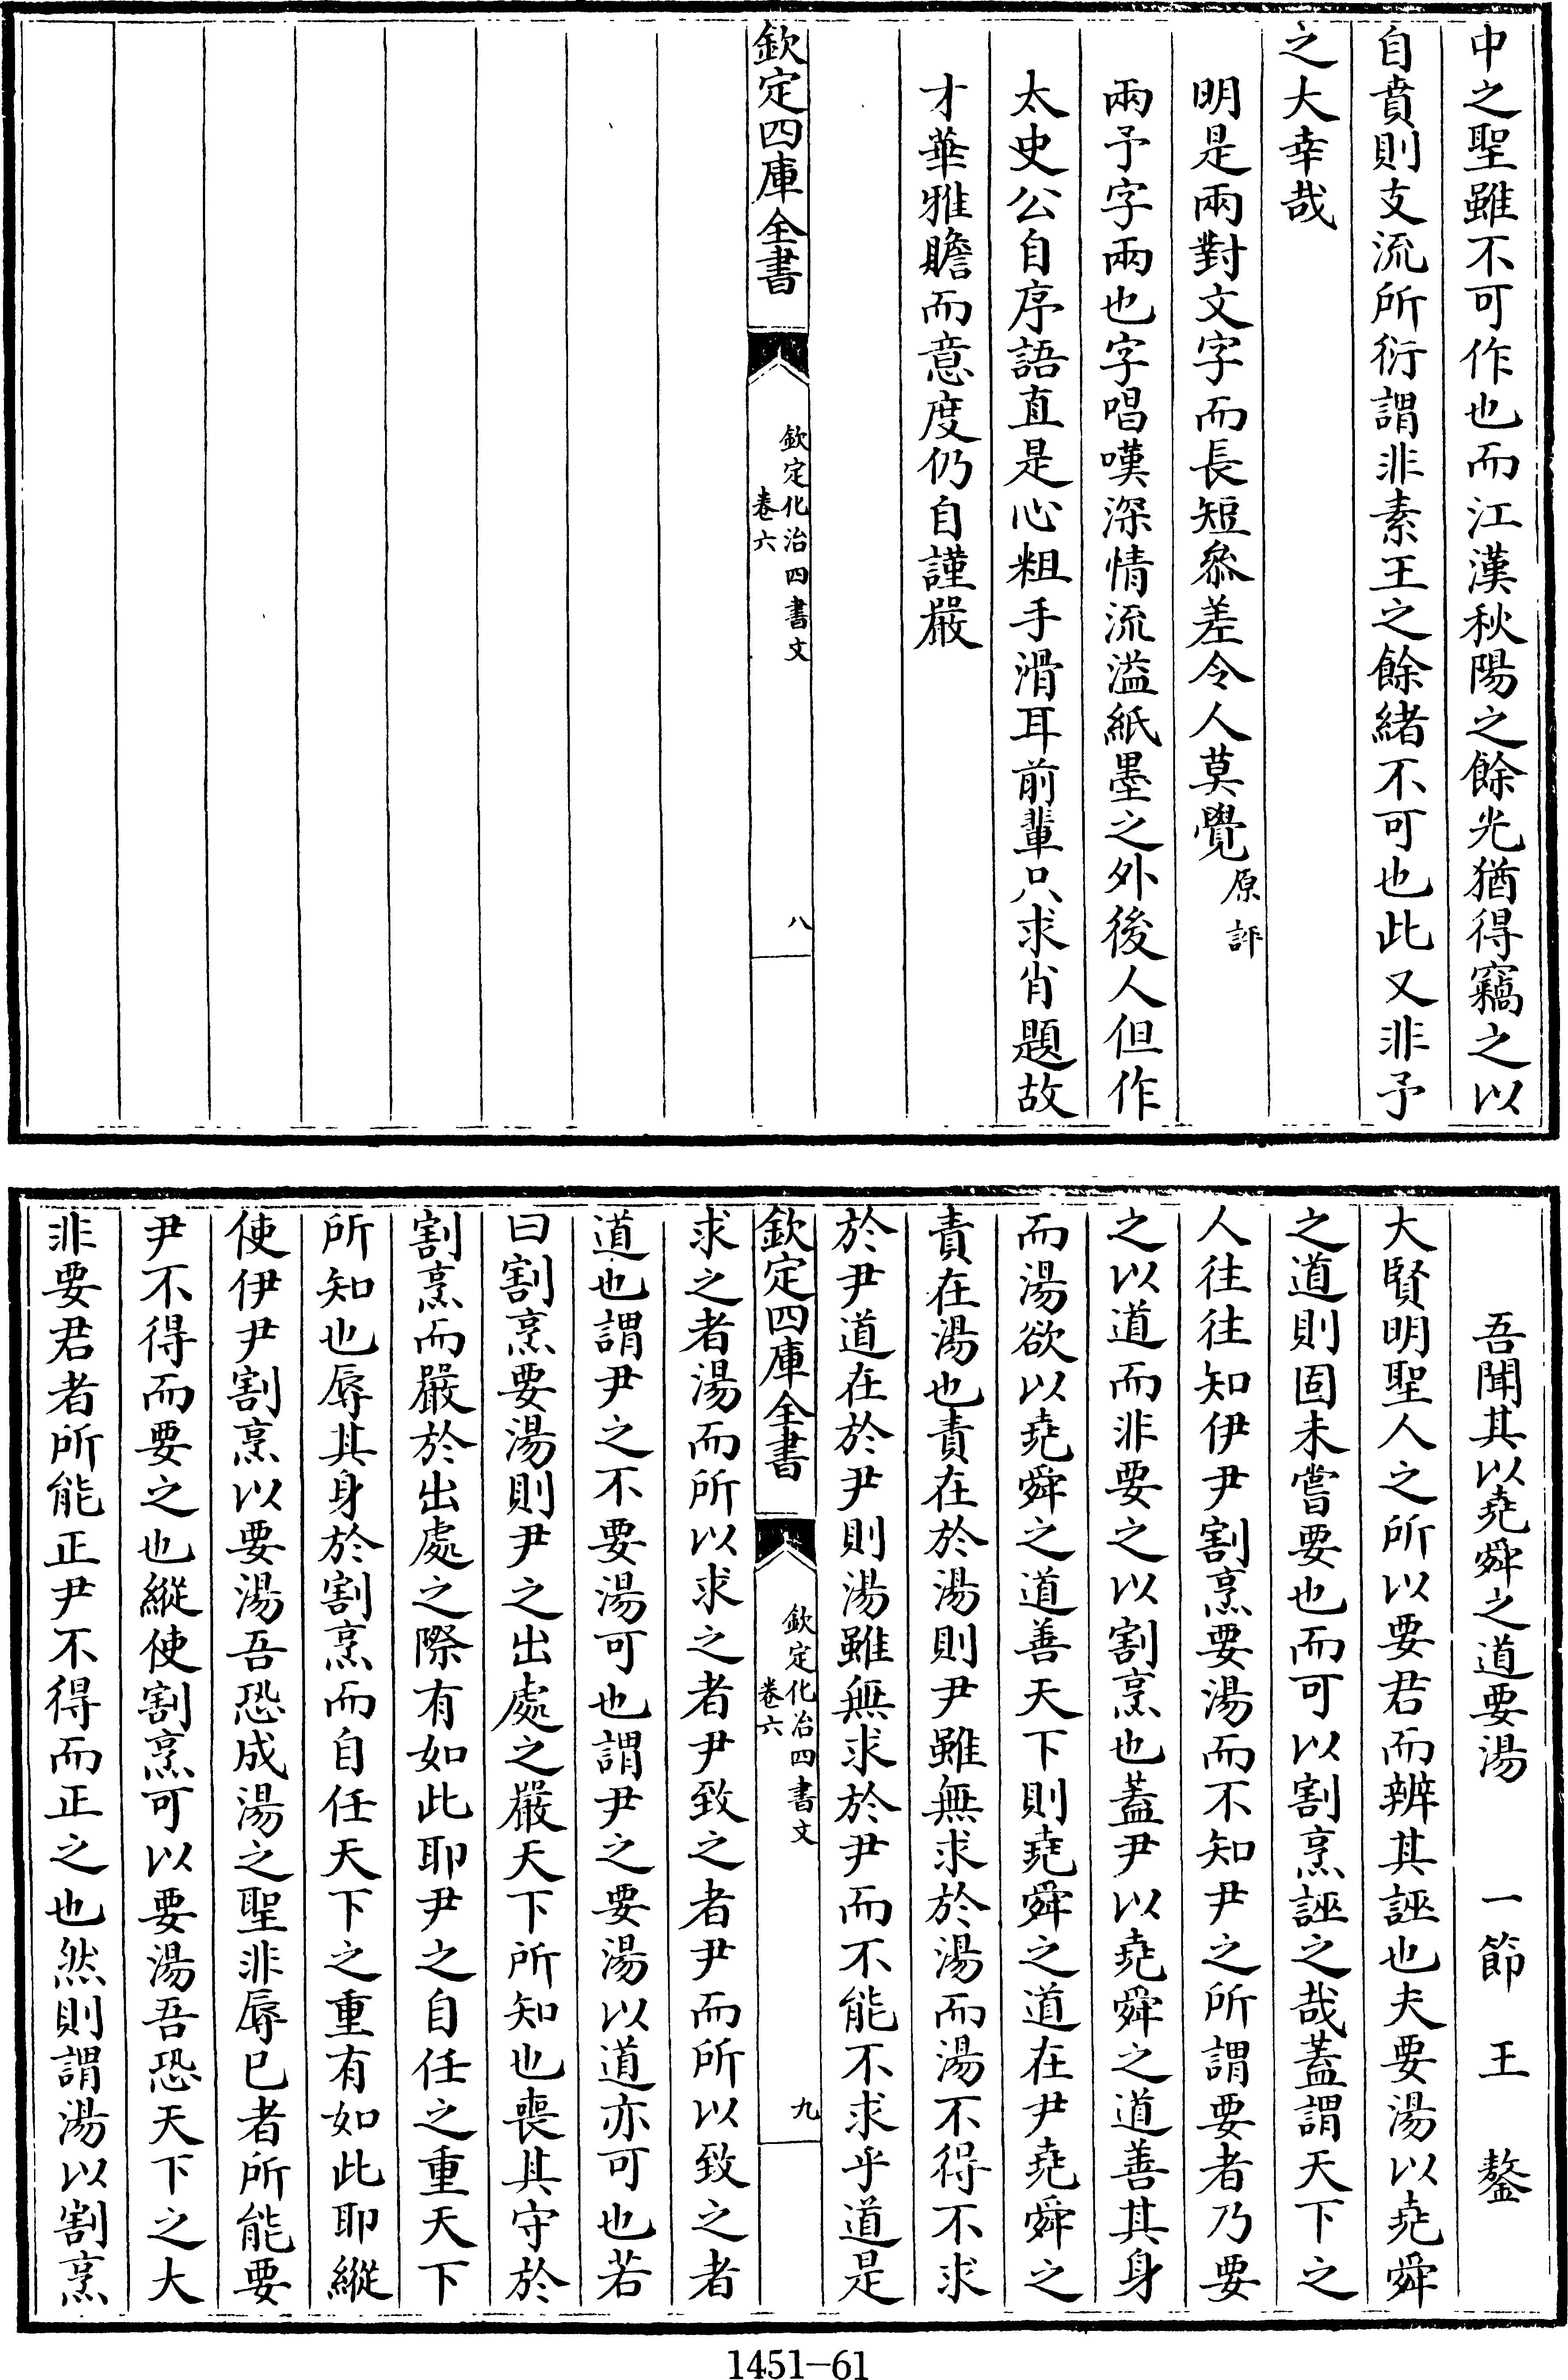 中之聖雖不可作也而江漢秋陽之餘光猶得竊之以
自賁則支流所衍謂非素王之餘緒不可也此又非予
之大幸哉
明是兩對文字而長短叅差令人莫覺原評
兩予字兩也字唱嘆深情流溢紙墨之外後人但作
太史公自序語直是心粗手滑耳前輩只求肖題故
才華雅贍而意度仍自謹嚴
欽定四庫全書
欽定化治四書文
卷六
八
吾聞其以堯舜之道要湯 一節 王 鏊
大賢明聖人之所以要君而辨其誣也夫要湯以堯舜
之道則固未嘗要也而可以割烹誣之哉蓋謂天下之
人往往知伊尹割烹要湯而不知尹之所謂要者乃要
之以道而非要之以割烹也蓋尹以堯舜之道善其身
而湯欲以堯舜之道善天下則堯舜之道在尹堯舜之
責在湯也責在於湯則尹雖無求於湯而湯不得不求
於尹道在於尹則湯雖無求於尹而不能不求乎道是
欽定四庫全書
欽定化治四書文
卷六
九
求之者湯而所以求之者尹致之者尹而所以致之者
道也謂尹之不要湯可也謂尹之要湯以道亦可也若
曰割烹要湯則尹之出處之嚴天下所知也喪其守於
割烹而嚴於出處之際有如此耶尹之自任之重天下
所知也辱其身於割烹而自任天下之重有如此耶縱
使伊尹割烹以要湯吾恐成湯之聖非辱已者所能要
尹不得而要之也縱使割烹可以要湯吾恐天下之大
非要君者所能正尹不得而正之也然則謂湯以割烹
1451-61